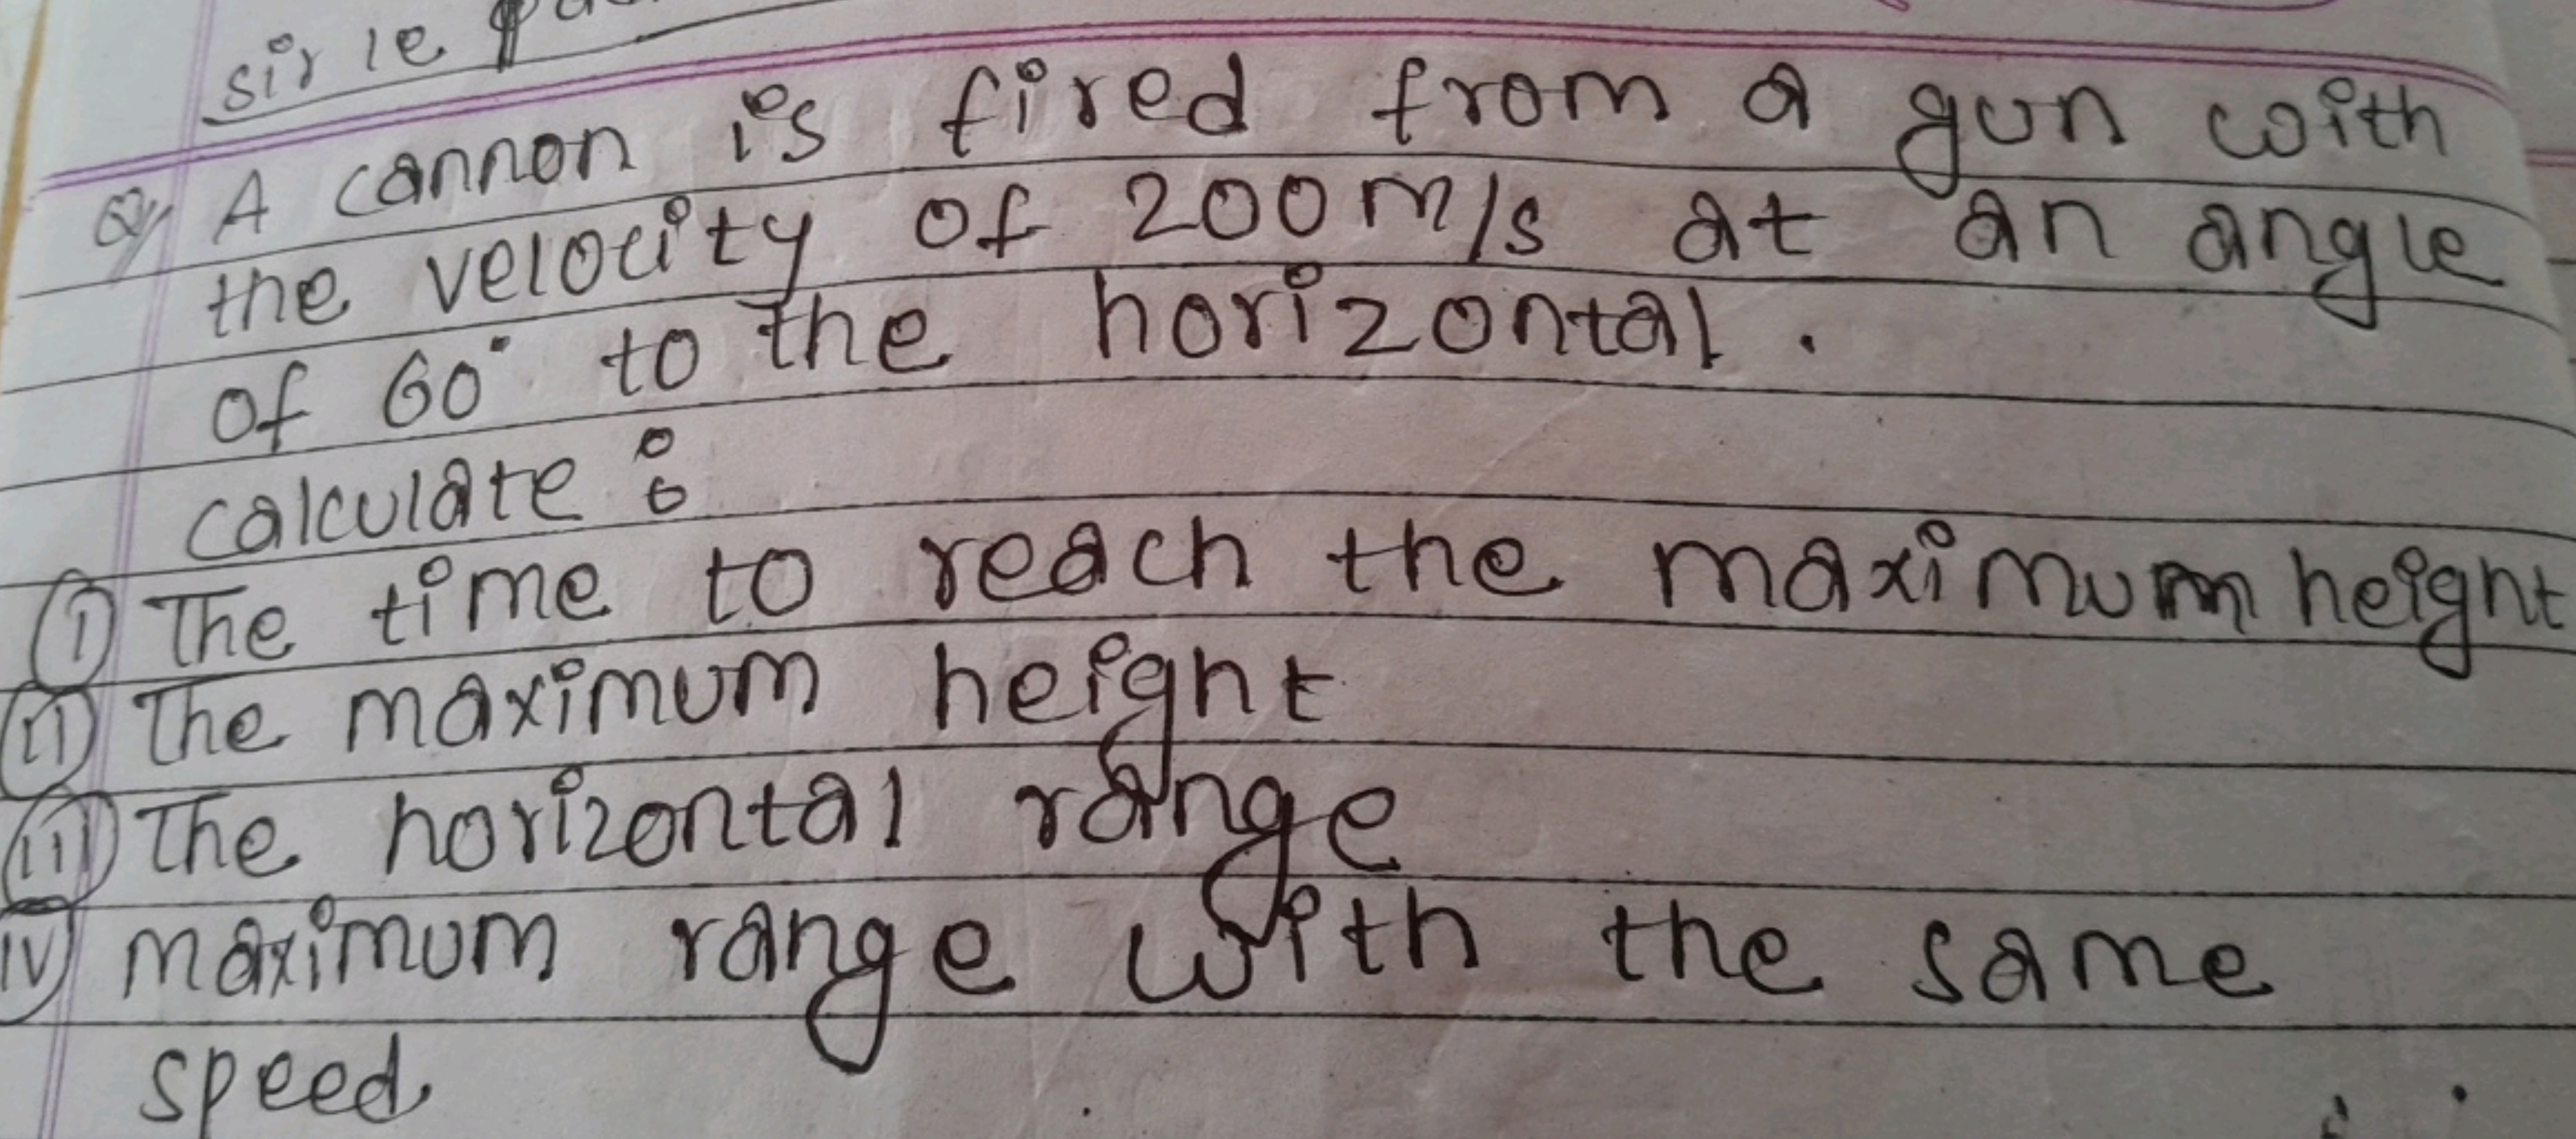 sir le
Q/ A cannon is fired from a gun with
the velocity of 200 m/s at an angle
of 60° to the horizontal.
calculate :
(i) The time to reach the maximum height
(ii) The maximum height
(iii) The horizontal range
(iv) maximum range with the same
speed.